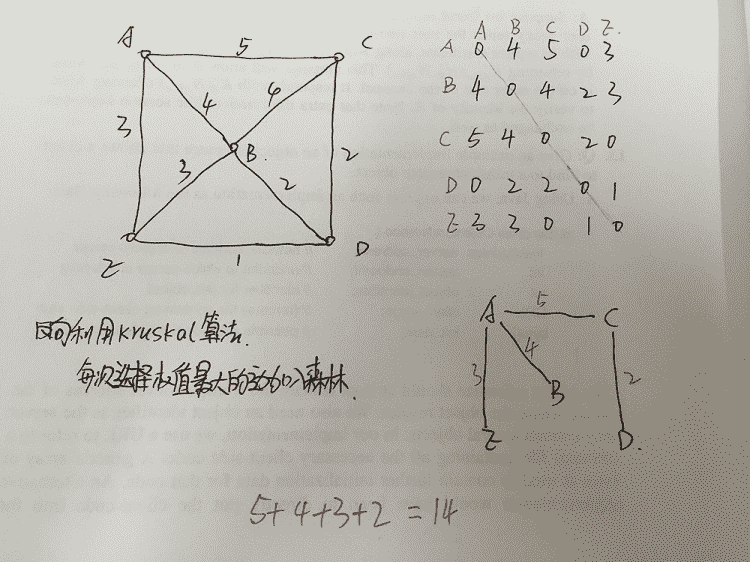 A 5 C
4 4
3 B. 2
3 2
E 1 D
A B C D E.
A 0 4 5 0 3
B 4 0 4 2 3
C 5 4 0 2 0
D 0 2 2 0 1
E 3 3 0 1 0
反向利用kruskal算法.
每次选择权值最大的边加入森林.
A 5 C
4
3 B 2
E D.
5+4+3+2 = 14